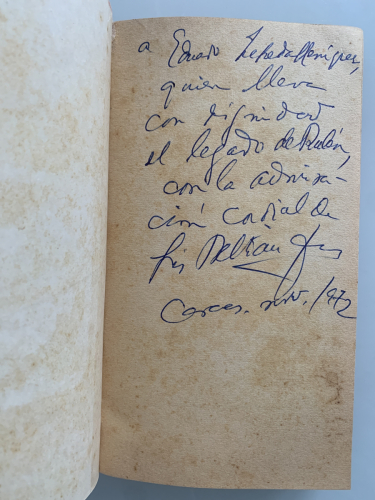 a Eduardo Zepeda Henríquez,
quien lleva
con dignidad
el legado de Rubén,
con la admira-
ción cordial de
Luis Beltrán
Caracas. nov. /1972